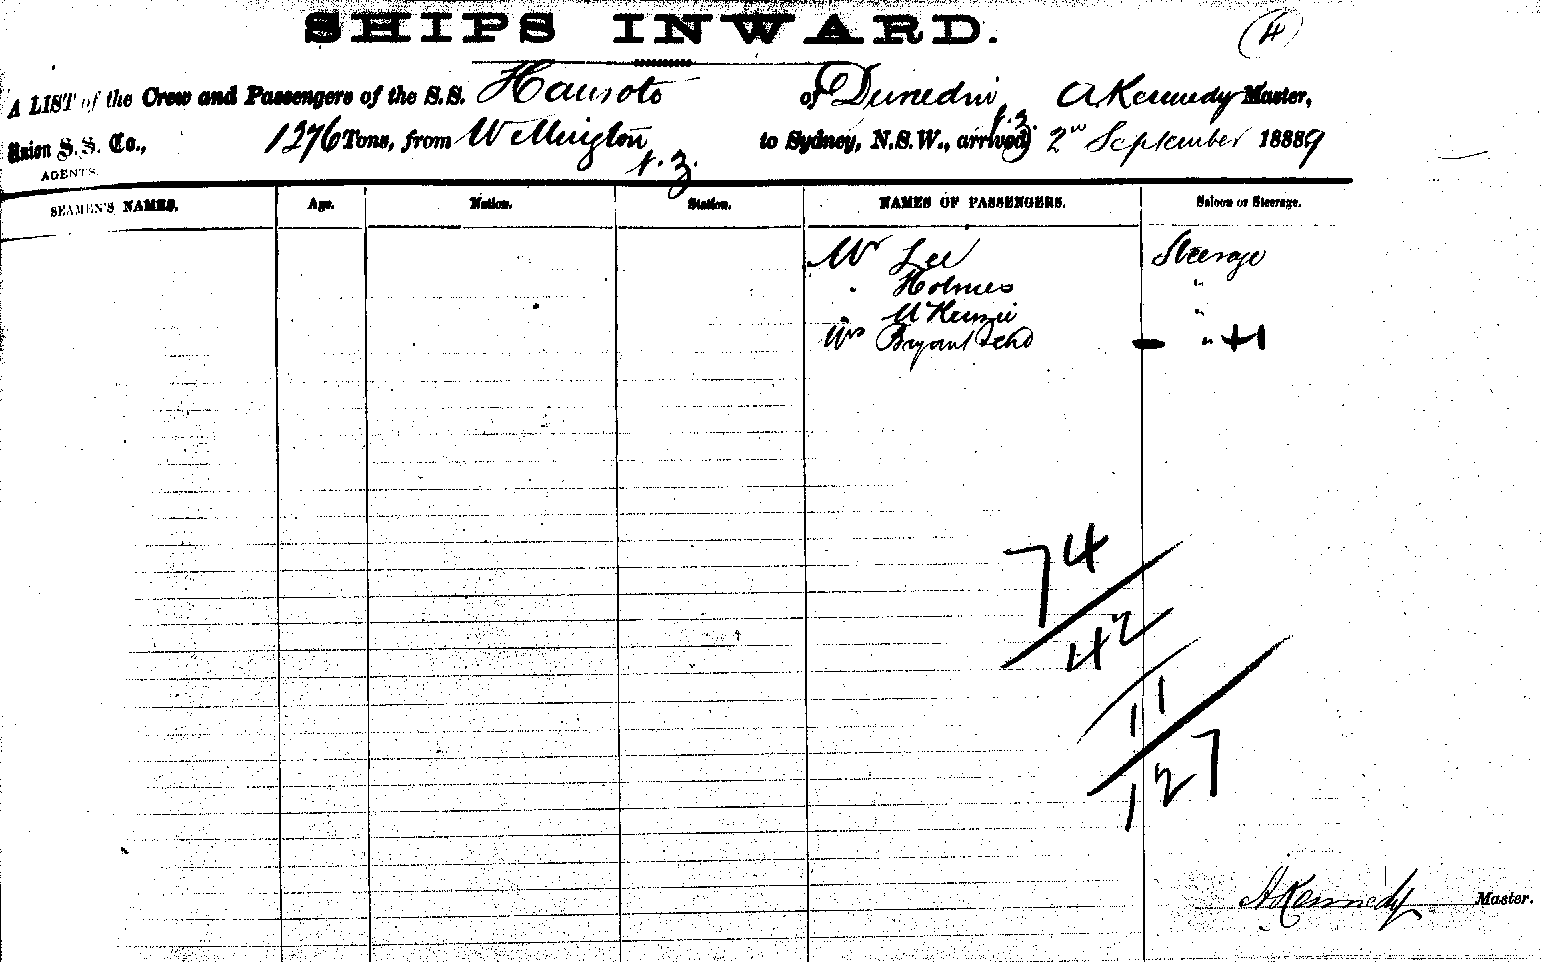 SHIPS INWARD.
4
A LIST of the Crew and Passengers of the S.S. Hauroto of Dunedin A Kennedy Master,
N.Z.
Union S.S. Co., 1276 Tons, from Wellington to Sydney, N.S.W., arrived 2nd September 18889
N.Z.
AGENTS.
SEAMEN'S NAMES. Age. Nation. Station. NAMES OF PASSENGERS. Saloon or Steerage.
Mr Lee Steerage
" Holmes "
" McKenzie "
Mrs Bryant & chd " +1
74
42
11
127
A Kennedy Master.